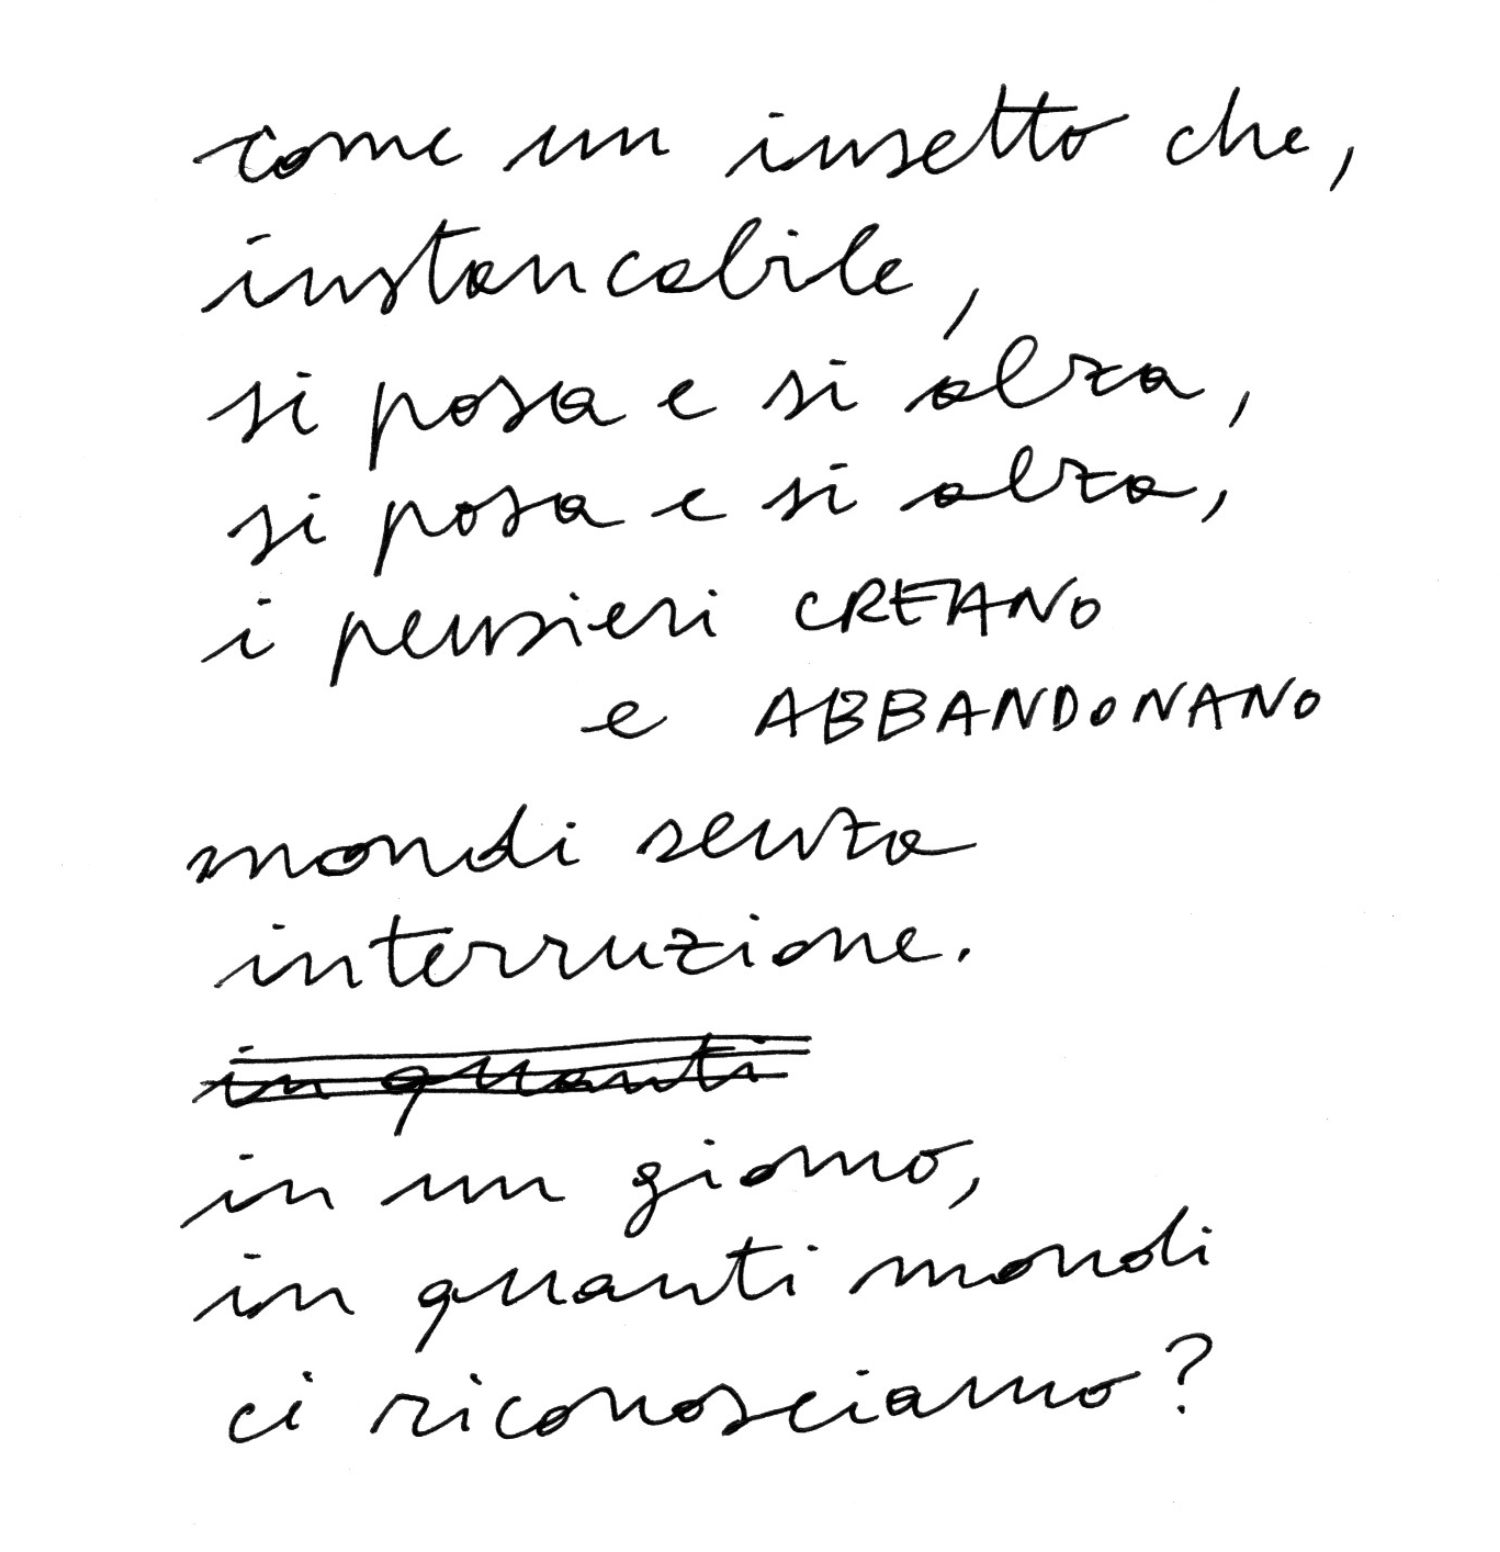 come un insetto che,
instancabile,
si posa e si alza,
si posa e si alza,
i pensieri CREANO
e ABBANDONANO
mondi senza
interruzione.
in quanti
in un giorno,
in quanti mondi
ci riconosciamo?